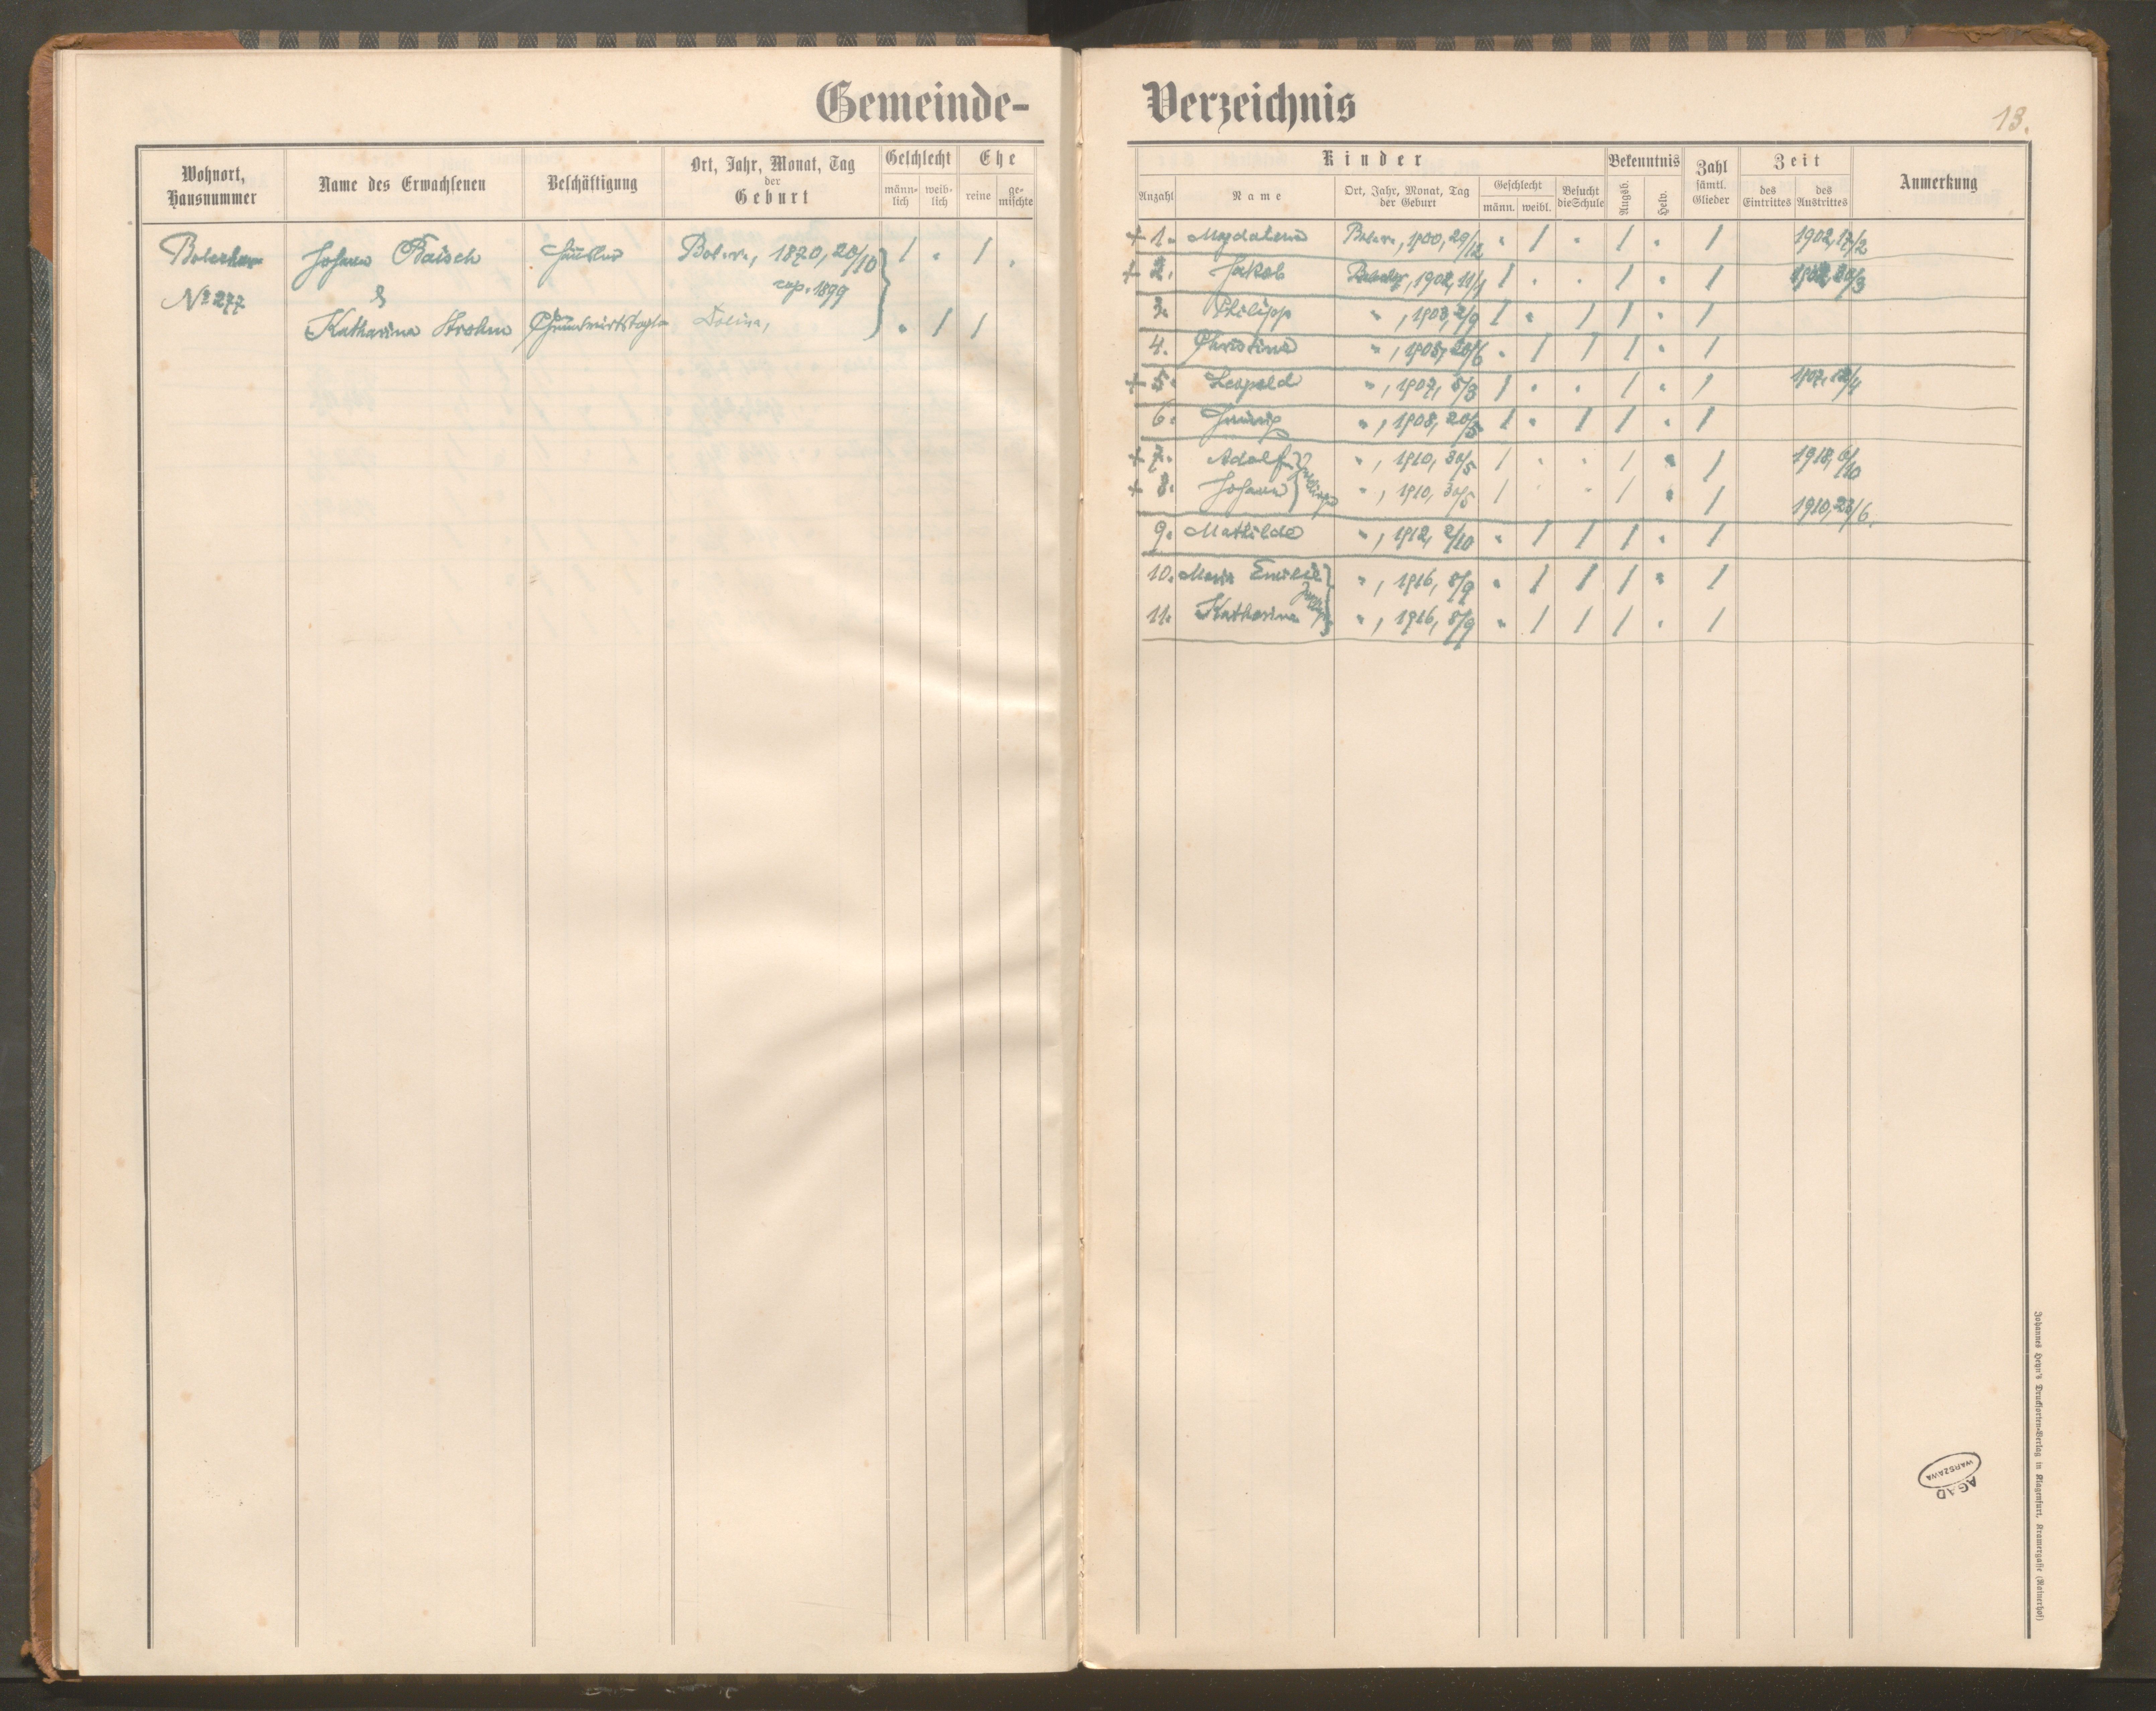 Gemeinde-
Wohnort, Hausnummer
Name des Erwachsenen
Beschäftigung
Ort, Jahr, Monat, Tag der Geburt
Geschlecht
männ-lich
weib-lich
Ehe
reine
ge-mischte
Johann Baisch Häusler 1870, 20/10 / " / "
No 277 & cop. 1899
Katharina Strohm Dolina, " / /
Verzeichnis
13.
Kinder
Anzahl
Name
Ort, Jahr, Monat, Tag der Geburt
Geschlecht
männ. weibl.
Besucht die Schule
Bekenntnis
Augsb.
Helv.
Zahl sämtl. Glieder
Zeit
des Eintrittes
des Austrittes
Anmerkung
+ 1. Magdalena 1900, 29/12 " / " / " / 1902, 17/2
+ 2. Jakob 1902, 11/1 / " " / " /
3. Philipp ", 1903, 2/9 / " / / " /
4. Christina " " / / / " /
+ 5. Leopold ", 1907, 5/3 / " " / " / 1907,
6. ", 1908, 20/5 / " / / " /
+ 7. Adolf ", 1910, 30/5 / " " / " / 1918, 6/10
+ 8. Johann Zwillinge ", 1910, 30/5 / " " / " / 1910, 23/6.
9. Mathilde ", 1912, 2/10 " / / / " /
10. Maria Emilie ", 1916, 8/9 " / / / " /
Zwillinge
11. Katharina ", 1916, 8/9 " / / / " /
Johannes Heyn's Drucksorten-Verlag in Klagenfurt, Kramergasse (Rainerhof)
AGAD
WARSZAWA